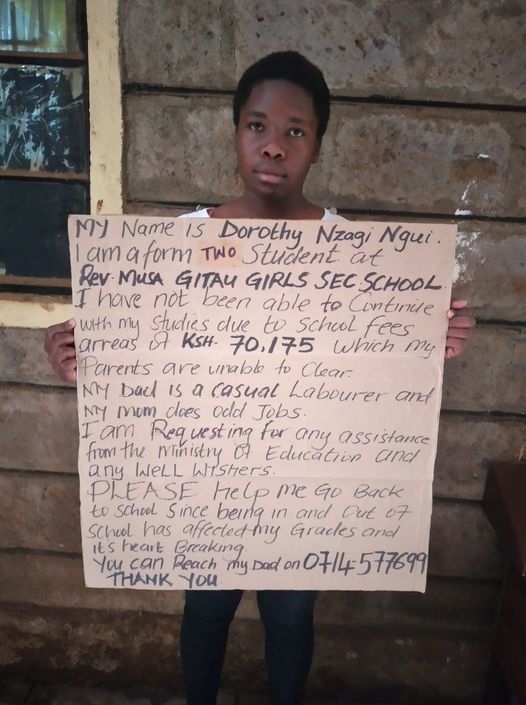 MY Name is Dorothy Nzagi Ngui.
I am a form TWO Student at
Rev. Musa GITAU GIRLS SEC SCHOOL.
I have not been able to Continue
with my Studies due to School fees
arreas of KSH. 70,175 which my
Parents are unable to Clear.
My Dad is a casual Labourer and
My mom does odd Jobs.
I am Requesting for any assistance
from the ministry of Education and
any WELL WISHERS.
PLEASE Help me Go Back
to school Since being in and Out of
School has affected my Grades and
it's heart Breaking.
You can Reach my Dad on 0714577699
THANK YOU.